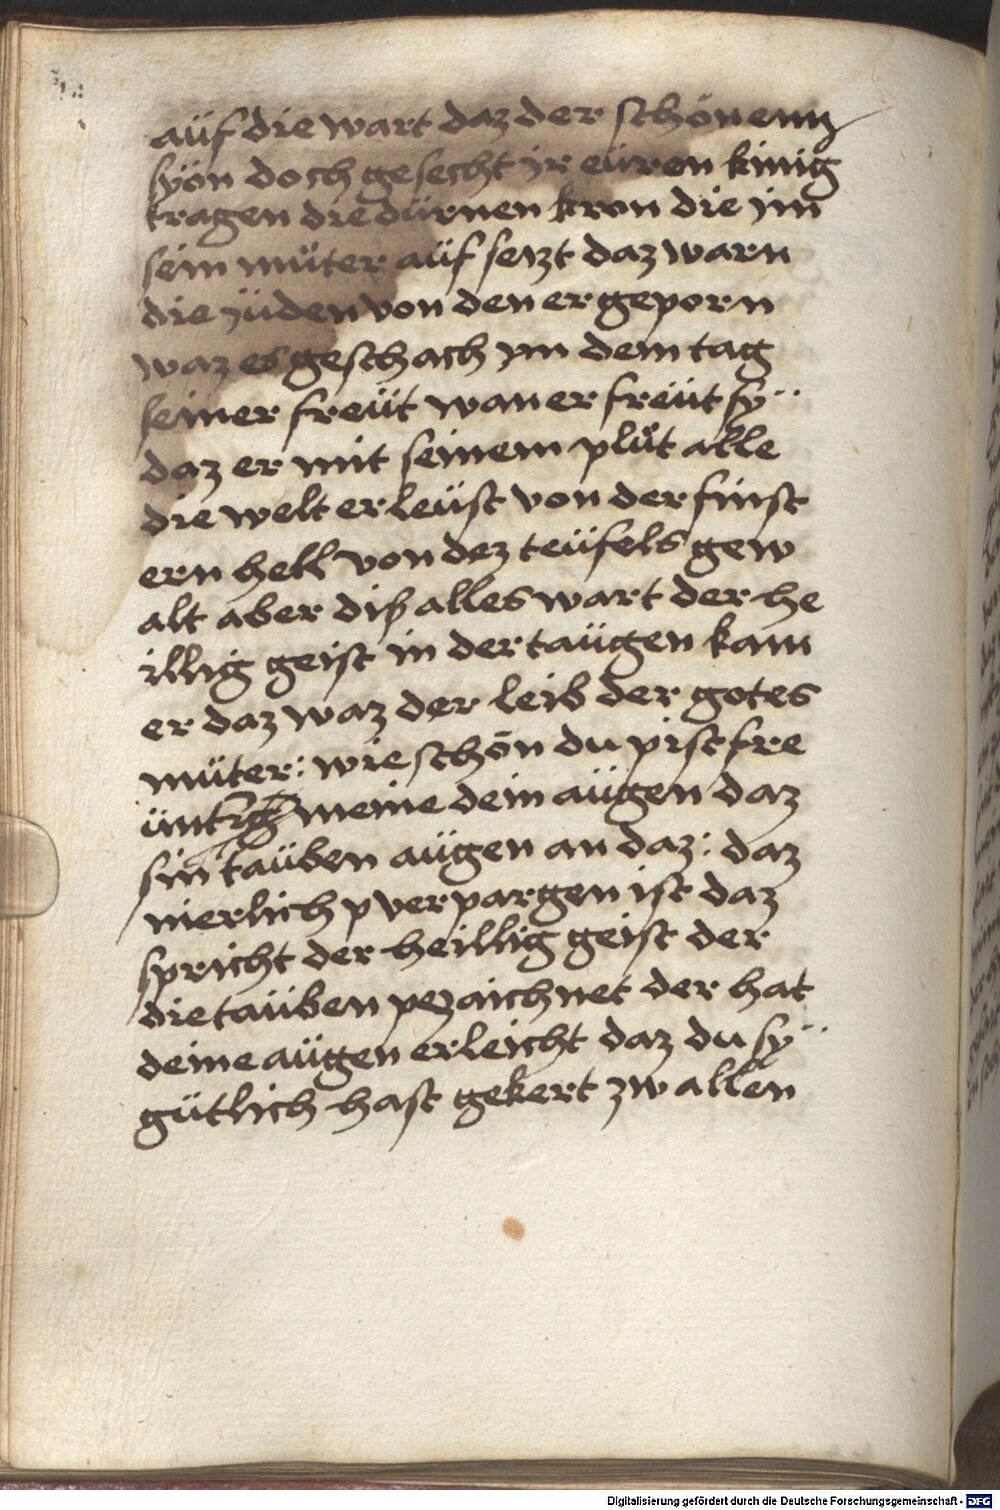 aüf die wart daz der schönenn
syön doch gesecht ir eüren kinig
tragen die dürnen kron die im
sein müter aüf seczt daz warn
die jüden von den er geporn
waz es geschach im dem tag
seiner freüt wan er freüt sy
daz er mit seinem plüt alle
die welt erleüst von der finst
ern hell von dez teüfels gew
alt aber diß alles wart der he
illig geist in der taügen kam
er daz waz der leib der gotes
müter: wie schön du pist fre
üntin meine dein aügen daz
sin taüben aügen an daz: daz
nierlich verpargen ist daz
spricht der heillig geist der
die taüben pezaichnet der hat
deine aügen erleicht daz du sy
gütlich hast gekert zw allen
Digitalisierung gefördert durch die Deutsche Forschungsgemeinschaft - DFG